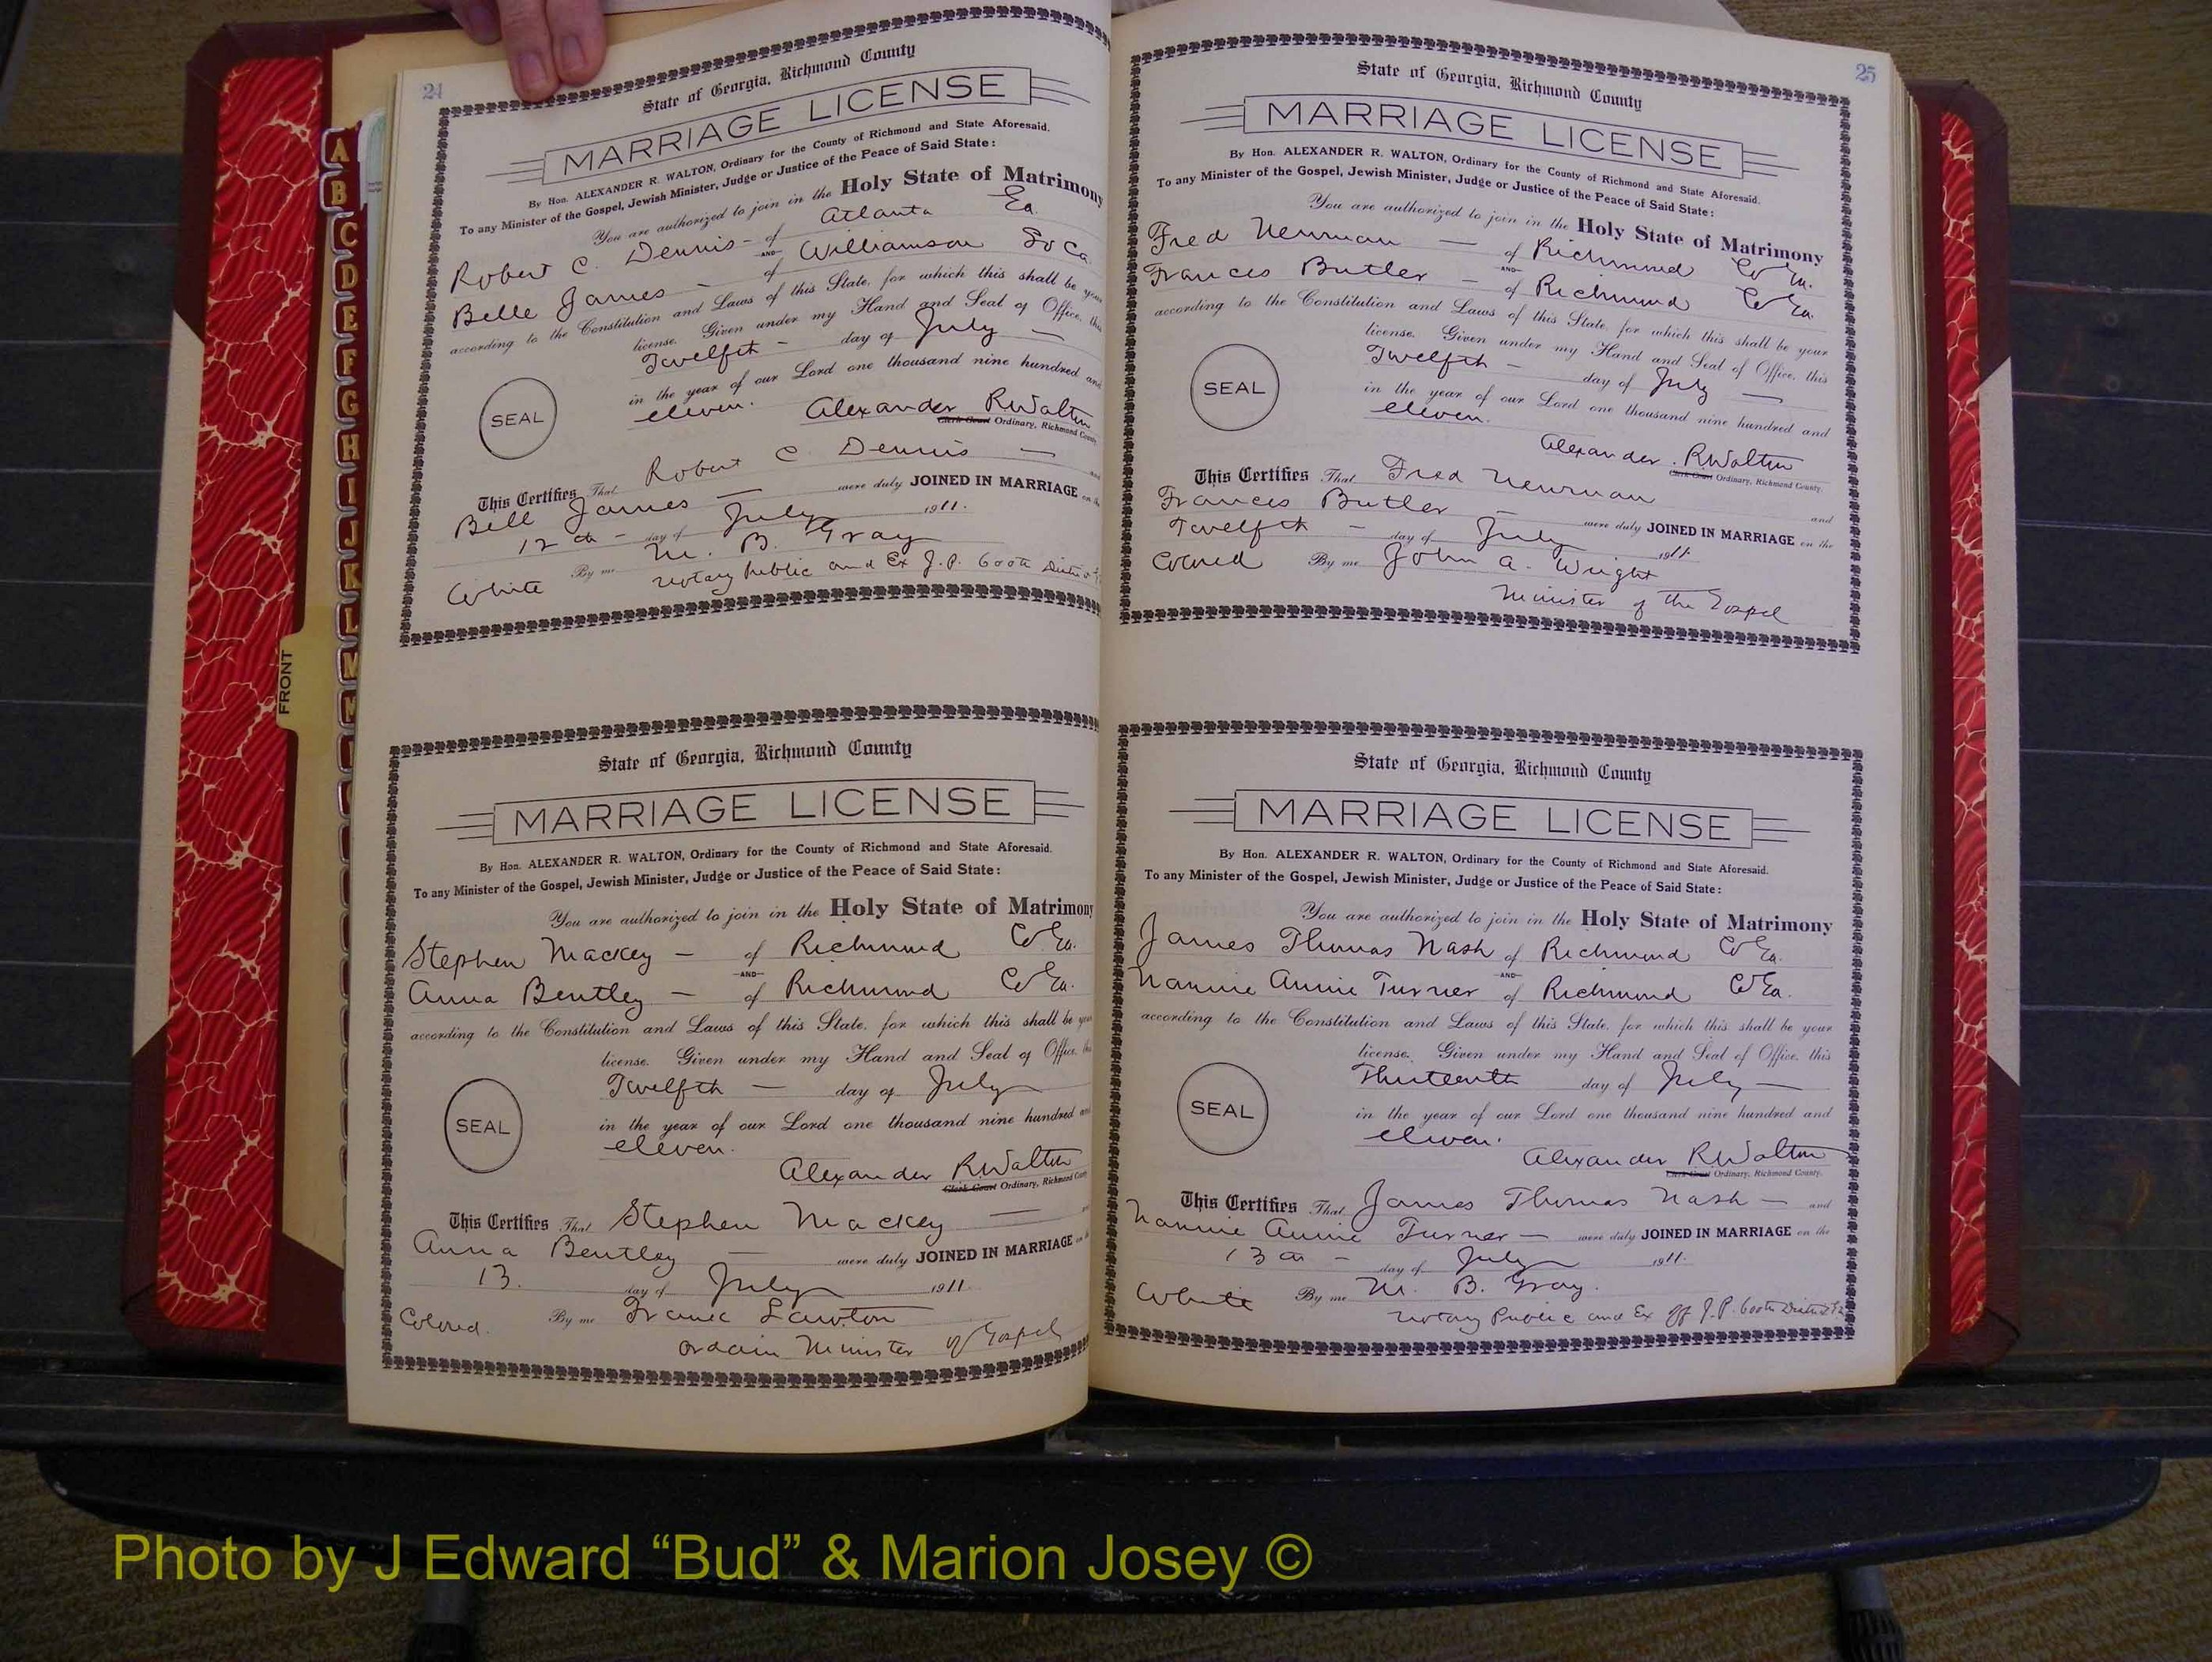 24
State of Georgia, Richmond County
MARRIAGE LICENSE
By Hon. ALEXANDER R. WALTON, Ordinary for the County of Richmond and State Aforesaid.
To any Minister of the Gospel, Jewish Minister, Judge or Justice of the Peace of Said State:
You are authorized to join in the Holy State of Matrimony
Robert C. Dennis - of Atlanta Ga.
AND
Belle James - of Williamson So Ca
according to the Constitution and Laws of this State, for which this shall be your
license. Given under my Hand and Seal of Office, this
Twelfth - day of July -
in the year of our Lord one thousand nine hundred and
eleven.
SEAL
Alexander R Walton
Clerk Court Ordinary, Richmond County
This Certifies That Robert C Dennis - and
Bell James - were duly JOINED IN MARRIAGE on the
12th - day of July 1911.
By me M. B. Gray
White Notary Public and Ex J.P. 600th
State of Georgia, Richmond County
MARRIAGE LICENSE
By Hon. ALEXANDER R. WALTON, Ordinary for the County of Richmond and State Aforesaid.
To any Minister of the Gospel, Jewish Minister, Judge or Justice of the Peace of Said State:
You are authorized to join in the Holy State of Matrimony
Stephen Mackey - of Richmond Co Ga.
AND
Anna Bentley - of Richmond Co Ga.
according to the Constitution and Laws of this State, for which this shall be your
license. Given under my Hand and Seal of Office, this
Twelfth - day of July
in the year of our Lord one thousand nine hundred and
eleven.
SEAL
Alexander R Walton
Clerk Court Ordinary, Richmond County
This Certifies That Stephen Mackey -
Anna Bentley - were duly JOINED IN MARRIAGE on the
13. day of July 1911.
Colored. By me Frank Lawton
ordain Minister of Gospel
25
State of Georgia, Richmond County
MARRIAGE LICENSE
By Hon. ALEXANDER R. WALTON, Ordinary for the County of Richmond and State Aforesaid.
To any Minister of the Gospel, Jewish Minister, Judge or Justice of the Peace of Said State:
You are authorized to join in the Holy State of Matrimony
Fred Newman - of Richmond Co Ga.
AND
Frances Butler - of Richmond Co Ga.
according to the Constitution and Laws of this State, for which this shall be your
license. Given under my Hand and Seal of Office, this
Twelfth - day of July -
in the year of our Lord one thousand nine hundred and
eleven.
SEAL
Alexander R Walton
Clerk Court Ordinary, Richmond County.
This Certifies That Fred Newman and
Frances Butler - were duly JOINED IN MARRIAGE on the
Twelfth - day of July 1911.
Colored By me John A. Wright
Minister of the Gospel
State of Georgia, Richmond County
MARRIAGE LICENSE
By Hon. ALEXANDER R. WALTON, Ordinary for the County of Richmond and State Aforesaid.
To any Minister of the Gospel, Jewish Minister, Judge or Justice of the Peace of Said State:
You are authorized to join in the Holy State of Matrimony
James Thomas Nash of Richmond Co Ga.
AND
Nannie Annie Turner of Richmond Co Ga.
according to the Constitution and Laws of this State, for which this shall be your
license. Given under my Hand and Seal of Office, this
Thirteenth day of July -
in the year of our Lord one thousand nine hundred and
eleven.
SEAL
Alexander R Walton
Clerk Court Ordinary, Richmond County.
This Certifies That James Thomas Nash - and
Nannie Annie Turner - were duly JOINED IN MARRIAGE on the
13th - day of July 1911.
White By me M. B. Gray.
Notary Public and Ex Off J.P. 600th
A
B
C
D
E
F
G
H
I
J
K
L
M
FRONT
Photo by J Edward “Bud” & Marion Josey ©